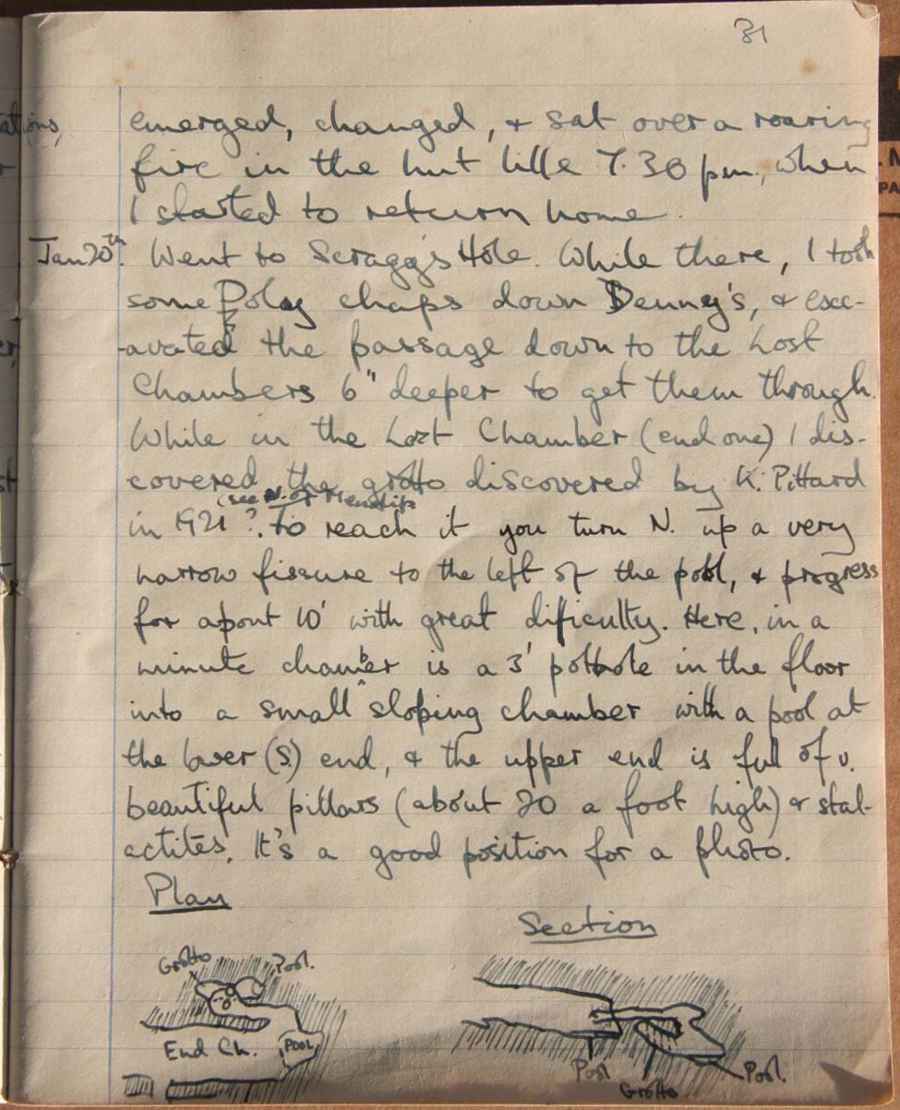 31
emerged, changed, & sat over a roaring
fire in the hut tille 7.30 pm, when
I started to return home.
Jan 20th. Went to Scragg's Hole. While there, I took
some Poley chaps down Denny's, & exc-
-avated the passage down to the Lost
Chambers 6" deeper to get them through.
While in the Lost Chamber (end one) I dis-
covered the grotto discovered by K. Pittard
(see N. of Mendip
in 1921 ?. To reach it you turn N. up a very
narrow fissure to the left of the pool, & progress
for apout 10' with great difficulty. Here, in a
minute chamber is a 3' pothole in the floor
into a small sloping chamber with a pool at
the lower (S) end, & the upper end is full of v.
beautiful pillars (about 20 a foot high) & stal-
actites. It's a good position for a photo.
Plan
Section
Grotto
Pool.
End Ch.
Pool
Pool
Grotto
Pool.